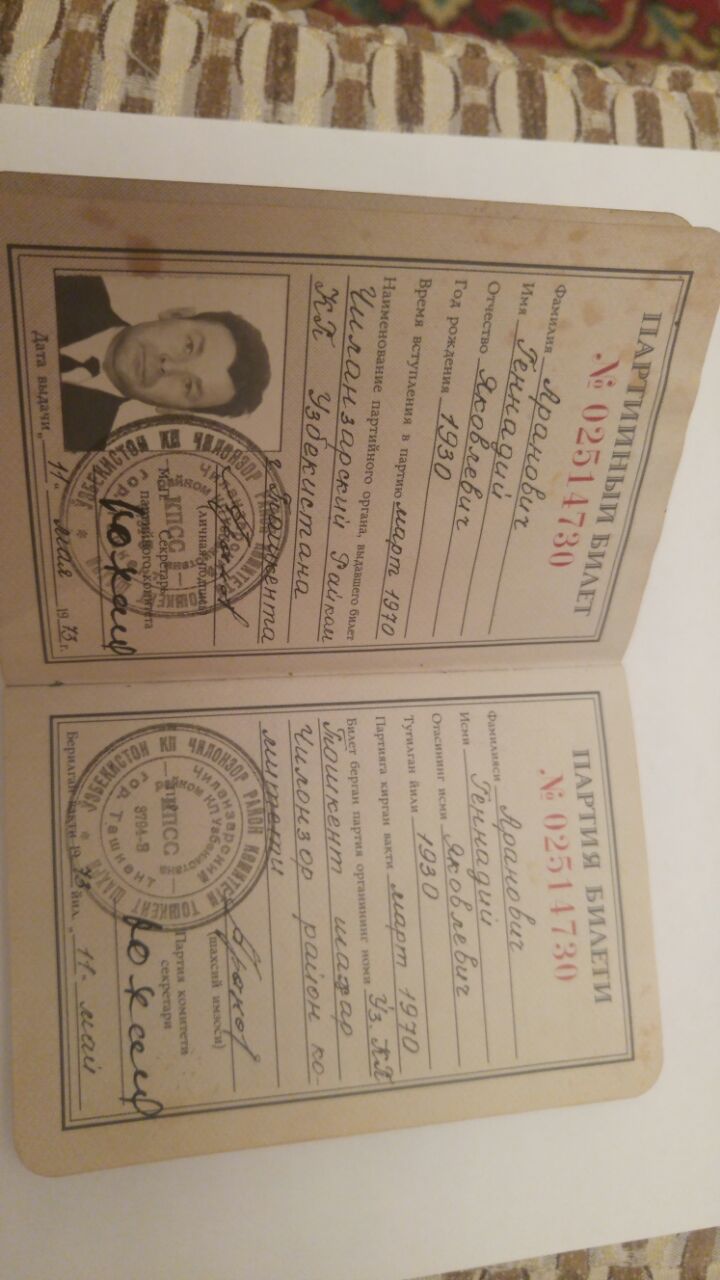 ПАРТИЙНЫЙ БИЛЕТ
№ 02514730
Фамилия Яранович
Имя Геннадий
Отчество Яковлевич
Год рождения 1930
Время вступления в партию март 1970
Наименование партийного органа, выдавшего билет
Чиланзарский Райком
КП Узбекистана
г. Ташкента
(личная подпись)
М.П. Секретарь
партийного комитета
Дата выдачи „11" мая 1973 г.
УЗБЕКИСТОН КП ЧИЛОНЗОР РАЙОН КОМИТЕТИ ТОШКЕНТ
КПСС
ПАРТИЯ БИЛЕТИ
№ 02514730
Фамилияси Яранович
Исми Геннадий
Отасининг исми Яковлевич
Туғилган йили 1930
Партияга кирган вақти март 1970
Билет берган партия органининг номи Уз. КП
Тошкент шаҳар
Чилонзор район ко-
митети
(шахсий имзоси)
Партия комитети
секретари
Берилган вақти 1973 йил „11" май
УЗБЕКИСТОН КП ЧИЛОНЗОР РАЙОН КОМИТЕТИ ТОШКЕНТ ШАҲАР
Чиланзарский райком КП Узбекистана
гор. Ташкент
КПСС